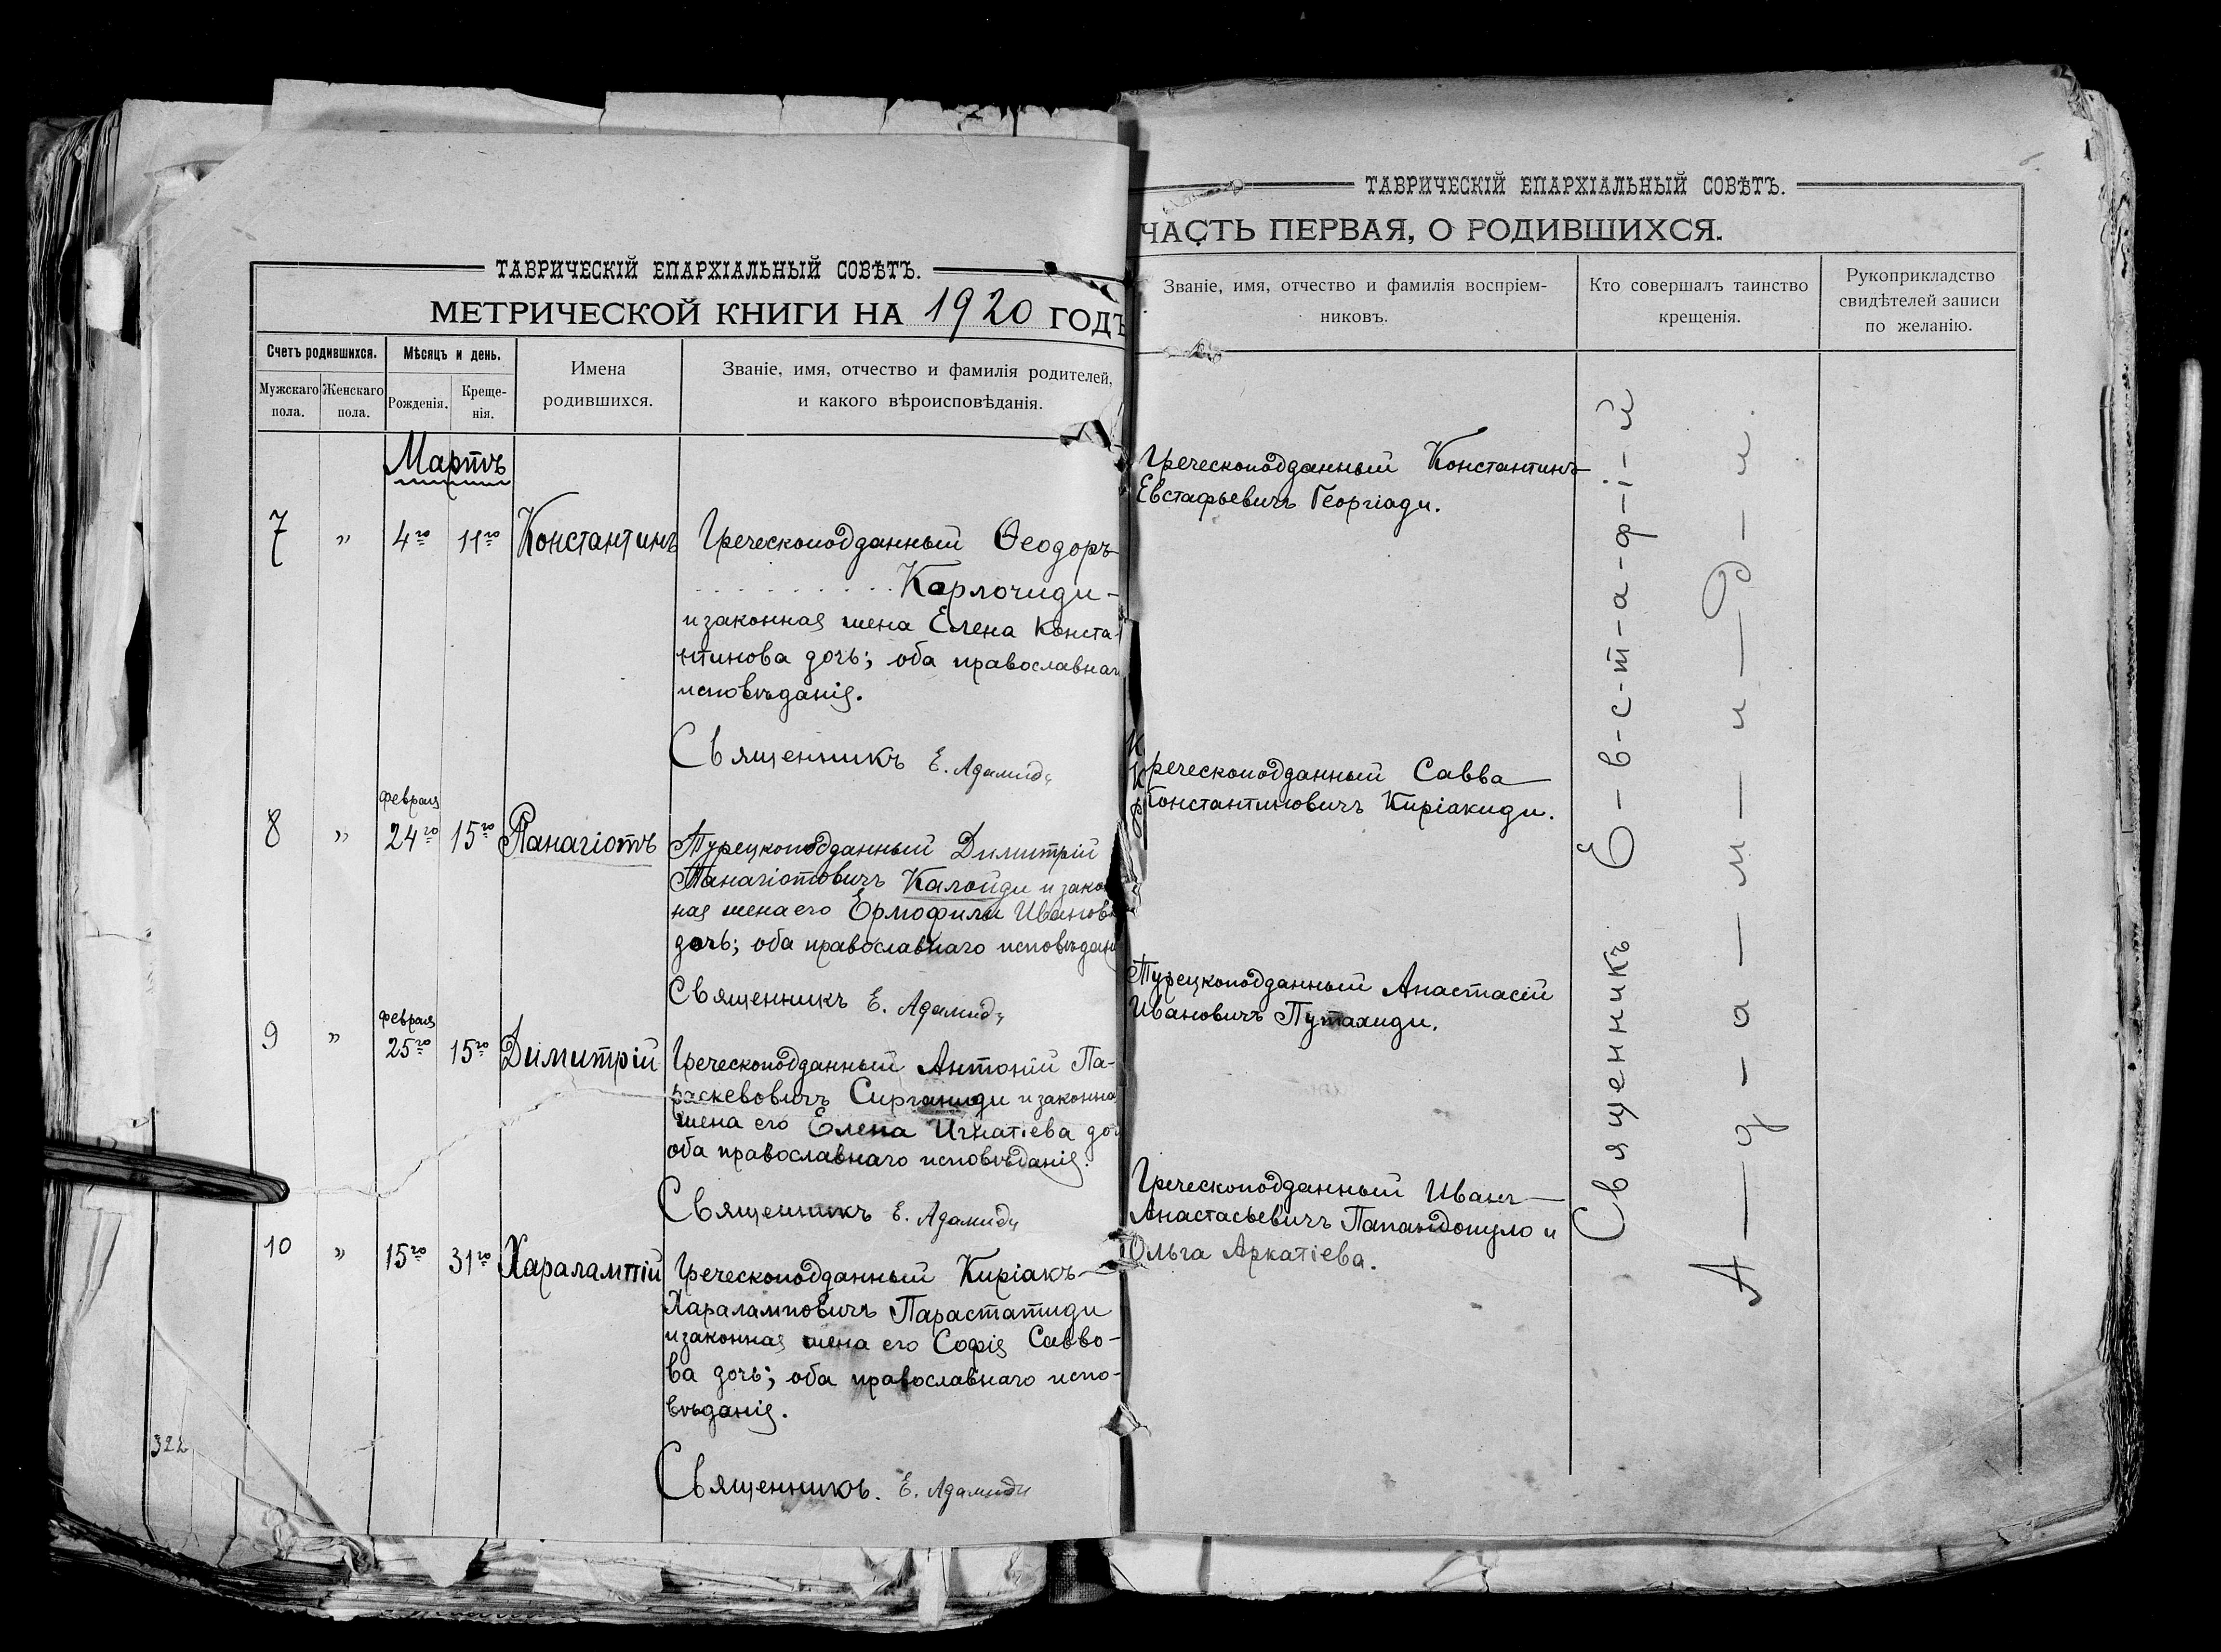 ТАВРИЧЕСКІЙ ЕПАРХІАЛЬНЫЙ СОВѢТЪ.
МЕТРИЧЕСКОЙ КНИГИ НА 1920 ГОДЪ
Счетъ родившихся.
Мѣсяцъ и день.
Имена
родившихся.
Званіе, имя, отчество и фамилія родителей,
и какого вѣроисповѣданія.
Мужскаго
пола.
Женскаго
пола.
Рожденія.
Креще-
нія.
Мартъ
7 " 4го 11го Константинъ
Греческоподданный Ѳеодоръ
. . . . . . . . . . Карлочиди -
и законная жена Елена Конста-
нтинова дочь; оба православнаго
исповѣданія.
Священникъ Е. Адамиди
февраля
8 " 24го 15го Панагіотъ
Турецкоподданный Димитрій
Панагіотовичъ Калойди и закон
ная жена его Ермофили Иванов
дочь; оба православнаго исповѣдан
Священникъ Е. Адамиди
февраля
9 " 25го 15го Димитрій
Греческоподданный Антоній Па-
раскевовичъ и законна
жена его Елена Игнатіева до
оба православнаго исповѣданія.
Священникъ Е. Адамиди
10 " 15го 31го Харалампій
Греческоподданный Киріакъ
Харалампович Парастатиди
и законная жена его Софія Савво-
ва дочь; оба православнаго испо-
вѣданія.
Священникъ. Е. Адамиди
322
ТАВРИЧЕСКІЙ ЕПАРХІАЛЬНЫЙ СОВѢТЪ.
ЧАСТЬ ПЕРВАЯ, О РОДИВШИХСЯ.
Званіе, имя, отчество и фамилія воспріем-
никовъ.
Кто совершалъ таинство
крещенія.
Рукоприкладство
свидѣтелей записи
по желанію.
Греческоподданный Константинъ
Евстафьевичъ Георгіади.
Греческоподданный Савва
Константиновичъ Киріакиди.
Турецкоподданный Анастасій
Ивановичъ Путахиди.
Греческоподданный Иванъ
Анастасьевичъ Папандопуло и
Ольга Аркатіева.
Священникъ Е-в-с-т-а-ф-і-й
А-д-а-м-и-д-и.